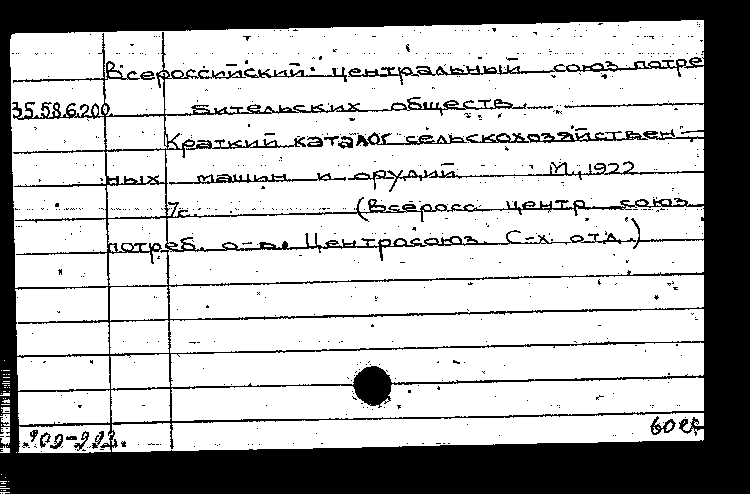 Всероссийский центральный союз потре
35.58.6.200. бительских обществ.
Краткий каталог сельскохозяйствен-
ных машин и орудий М., 1922
7с. (Всеросс. центр. союз
потреб. о-в. Центросоюз. С-х. отд.)